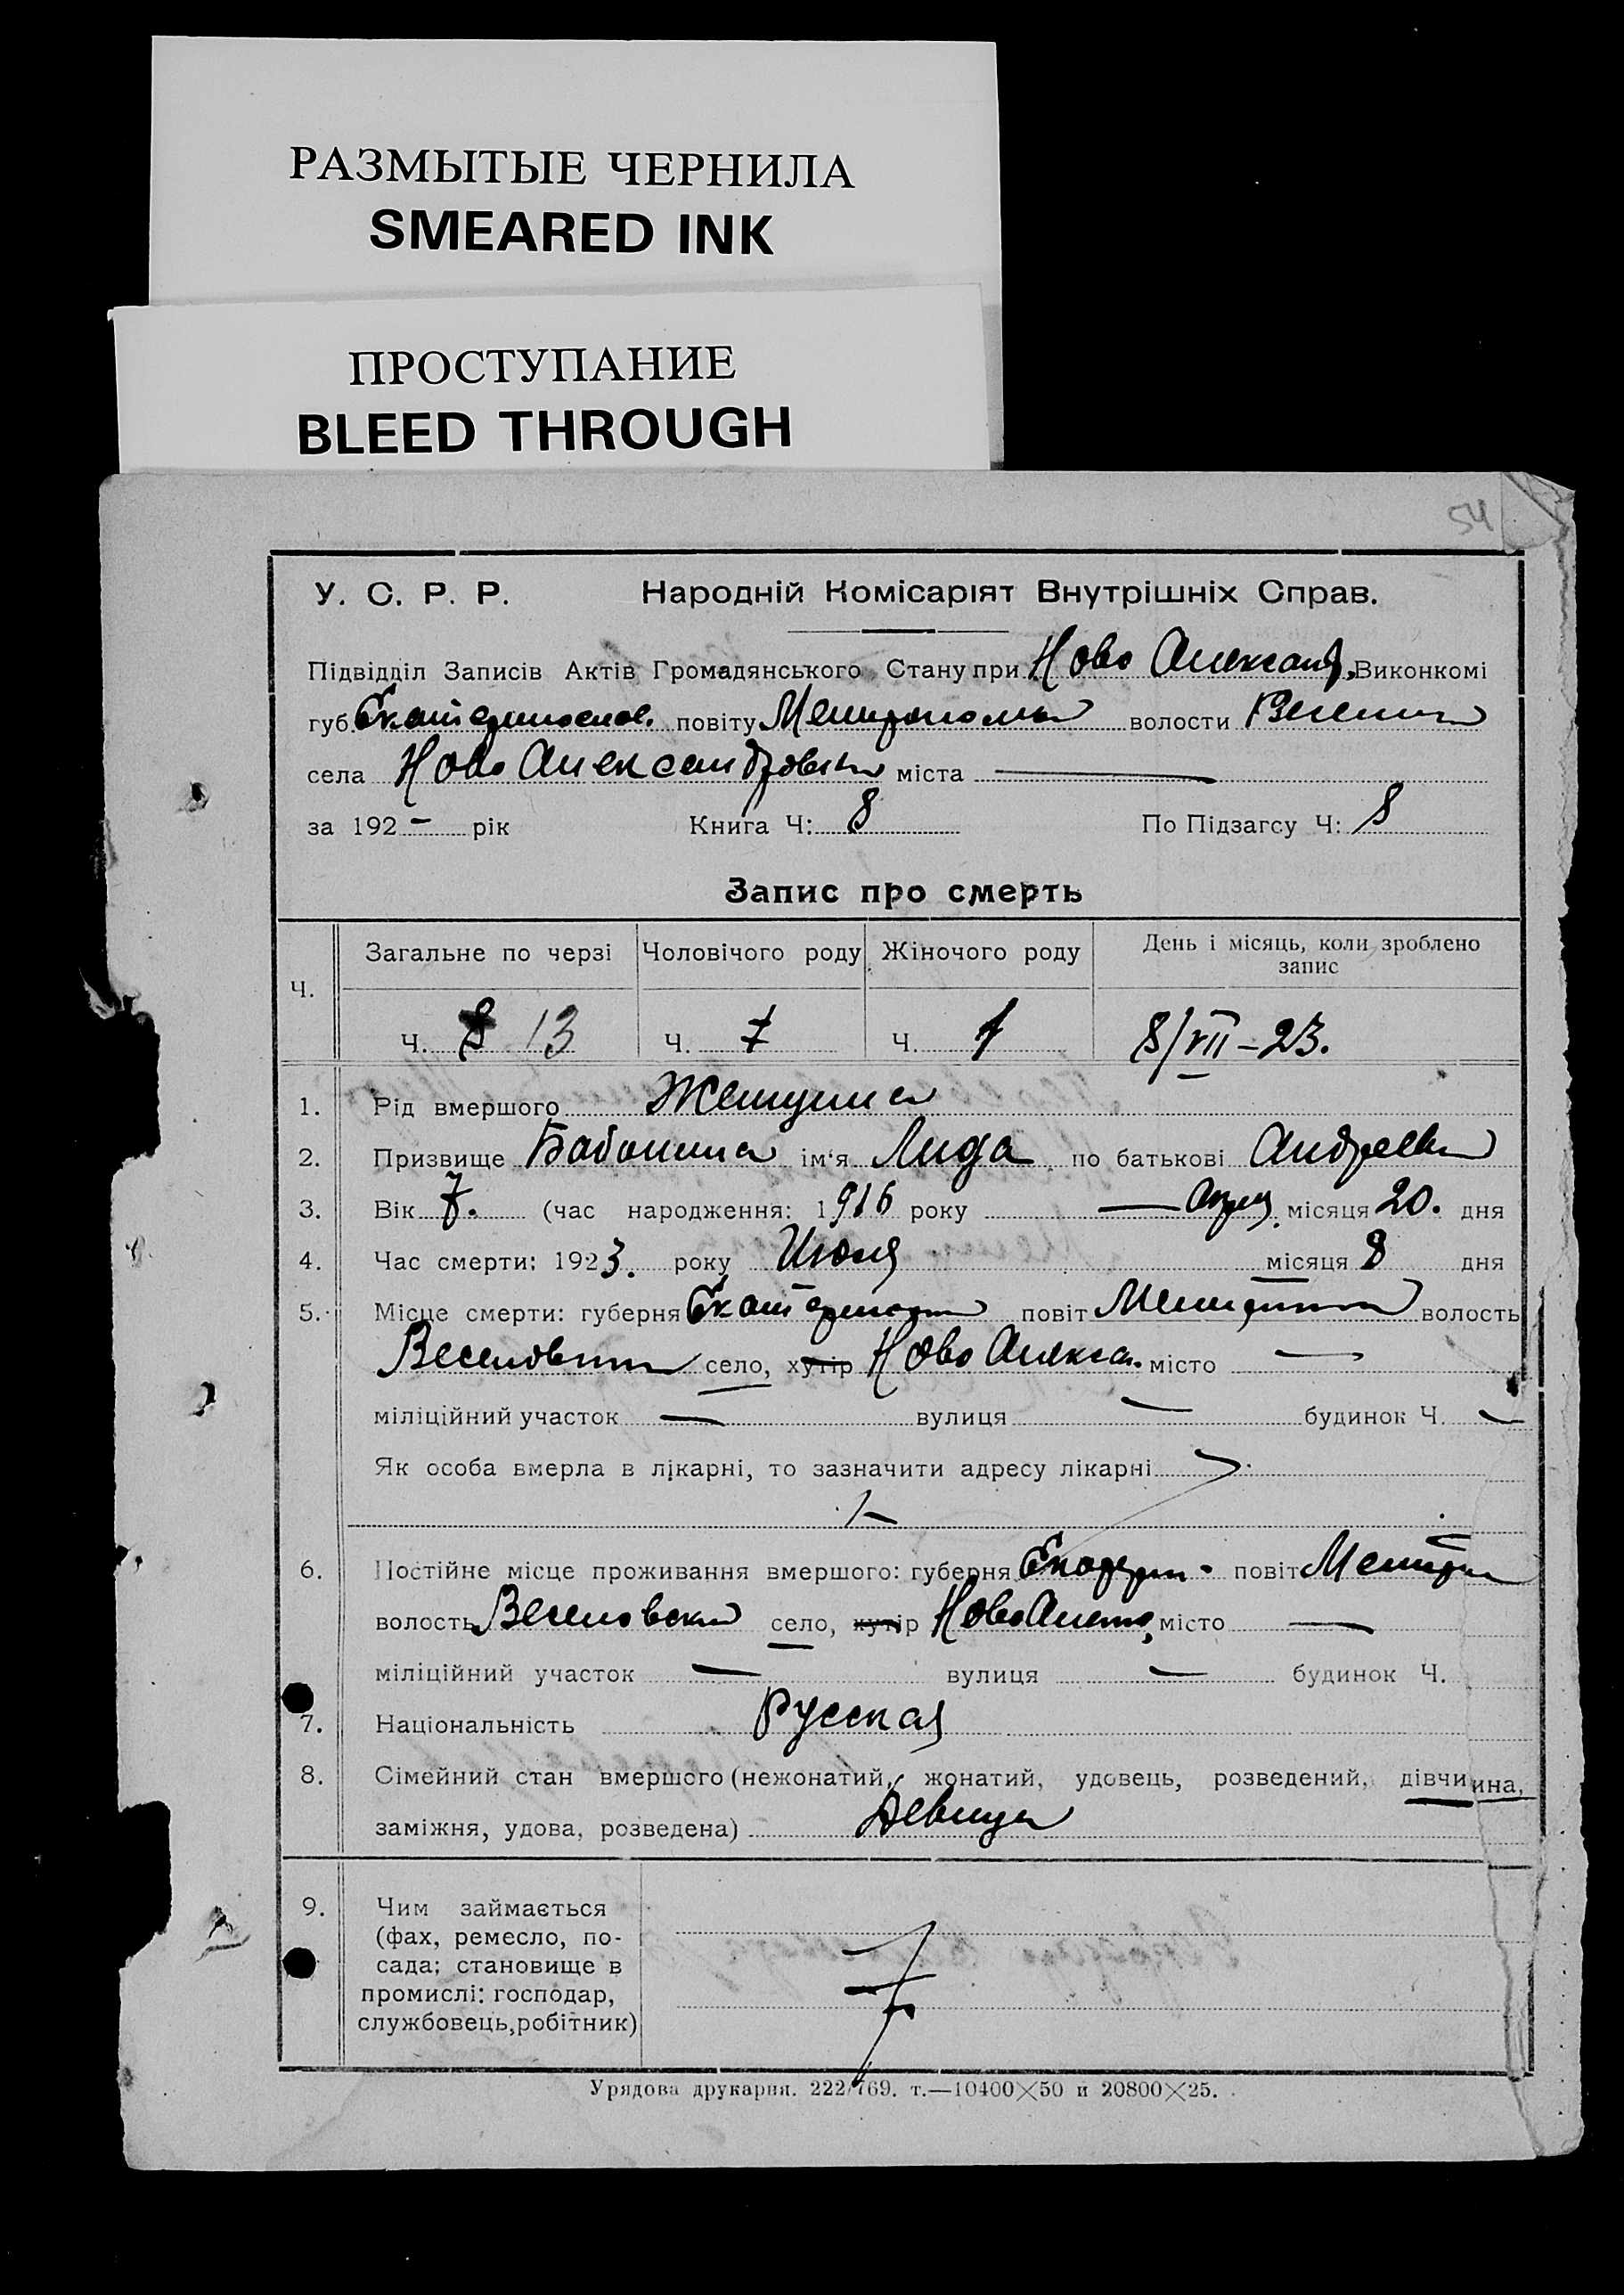 РАЗМЫТЫЕ ЧЕРНИЛА
SMEARED INK
ПРОСТУПАНИЕ
BLEED THROUGH
54
У. С. Р. Р. Народній Комісаріят Внутрішніх Справ.
Підвідділ Записів Актів Громадянського Стану при Ново Александ. Виконкомі
губ. Екатеринослав. повіту волости
села Ново Александровка міста —
за 192 - рік Книга Ч: 8 По Підзагсу Ч: 8
Запис про смерть
Ч. Загальне по черзі Чоловічого роду Жіночого роду День і місяць, коли зроблено запис
Ч. 8 13 Ч. 7 Ч. 1 8/VII – 23.
1. Рід вмершого Женщина
2. Призвище ім'я Лида, по батькові Андреевн
3. Вік 7. (час народження: 1916 року — Апр. місяця 20. дня
4. Час смерти: 1923. року Июля місяця 8 дня
5. Місце смерти: губерня повіт волость
село, хутір Ново Алекса. місто —
міліційний участок — вулиця — будинок Ч. —
Як особа вмерла в лікарні, то зазначити адресу лікарні
6. Постійне місце проживання вмершого: губерня повіт
волость Веселовская село, хутір місто —
міліційний участок — вулиця — будинок Ч.
7. Національність Русская
8. Сімейний стан вмершого (нежонатий, жонатий, удовець, розведений, дівчина,
заміжня, удова, розведена) Девица
9. Чим займається
(фах, ремесло, по-
сада; становище в
промислі: господар,
службовець,робітник)
Урядова друкарня. 222/769. т.—10400×50 и 20800×25.